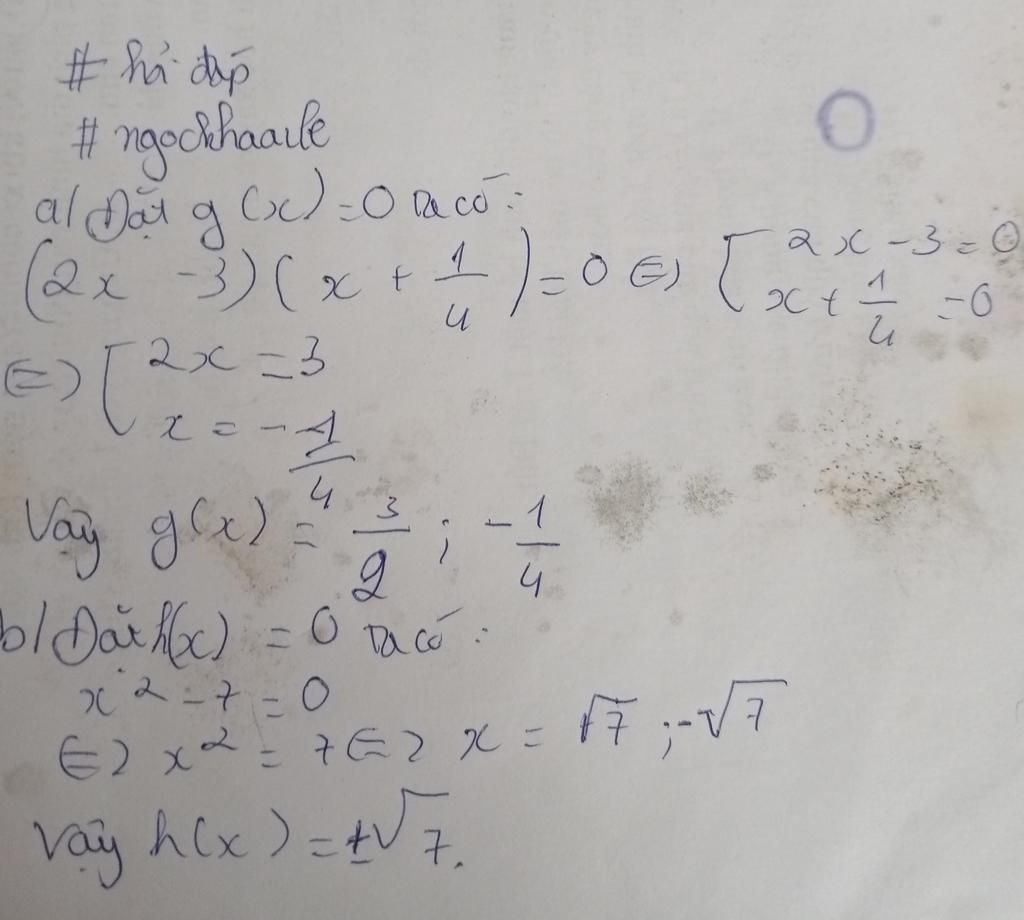 # hỏi đáp
# ngockhaarle
O
a/ Đặt g(x) = 0 Ta có:
(2x - 3)(x + 1/4) = 0 <=> [ 2x - 3 = 0
x + 1/4 = 0
<=> [ 2x = 3
x = -1/4
Vậy g(x) = 3/2 ; -1/4
b/ Đặt h(x) = 0 Ta có:
x² - 7 = 0
<=> x² = 7 <=> x = √7 ; -√7
Vậy h(x) = ±√7.